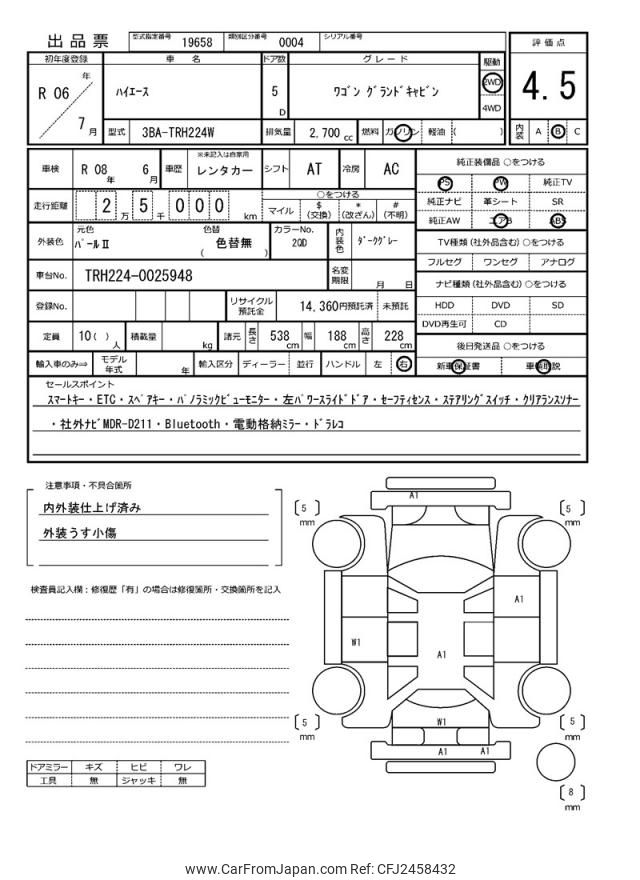 出品票 型式指定番号 19658 類別区分番号 0004 シリアル番号
初年度登録 車名 ドア数 グレード 駆動 評価点
R 06 年 7 月 ハイエース 5 D ワゴン グランドキャビン 2WD 4WD 4.5
型式 3BA-TRH224W 排気量 2,700 cc 燃料 ガソリン 軽油 ( ) 内装 A B C
車検 R 08 年 6 月 車歴 ※未記入は自家用 レンタカー シフト AT 冷房 AC 純正装備品 ○をつける
PS PW 純正TV
走行距離 2 万 5 千 0 0 0 km ○をつける
マイル $ (交換) * (改ざん) # (不明)
純正ナビ 革シート SR
純正AW エアB ABS
外装色 元色 パールⅡ 色替 色替無 ( ) カラーNo. 20D 内装色 ダークグレー
TV種類 (社外品含む) ○をつける
フルセグ ワンセグ アナログ
車台No. TRH224-0025948 名変期限 月 日
ナビ種類 (社外品含む) ○をつける
登録No. リサイクル預託金 14,360円預託済 未預託
HDD DVD SD
DVD再生可 CD
定員 10( ) 人 積載量 kg 諸元 長さ 538 cm 幅 188 cm 高さ 228 cm
後日発送品 ○をつける
輸入車のみ⇒ モデル年式 年 輸入区分 ディーラー ・ 並行 ハンドル 左 右
新車保証書 車輌取説
セールスポイント
スマートキー・ETC・スペアキー・パノラミックビューモニター・左パワースライドドア・セーフティセンス・ステアリングスイッチ・クリアランスソナー
・社外ナビMDR-D211・Bluetooth・電動格納ミラー・ドラレコ
注意事項・不具合箇所
内外装仕上げ済み
外装うす小傷
検査員記入欄：修復歴「有」の場合は修復箇所・交換箇所を記入
A1
[5] mm
[5] mm
A1
W1
A1
[5] mm
W1
[5] mm
A1 A1
[8] mm
ドアミラー キズ ヒビ ワレ
工具 無 ジャッキ 無
www.CarFromJapan.com Ref: CFJ2458432